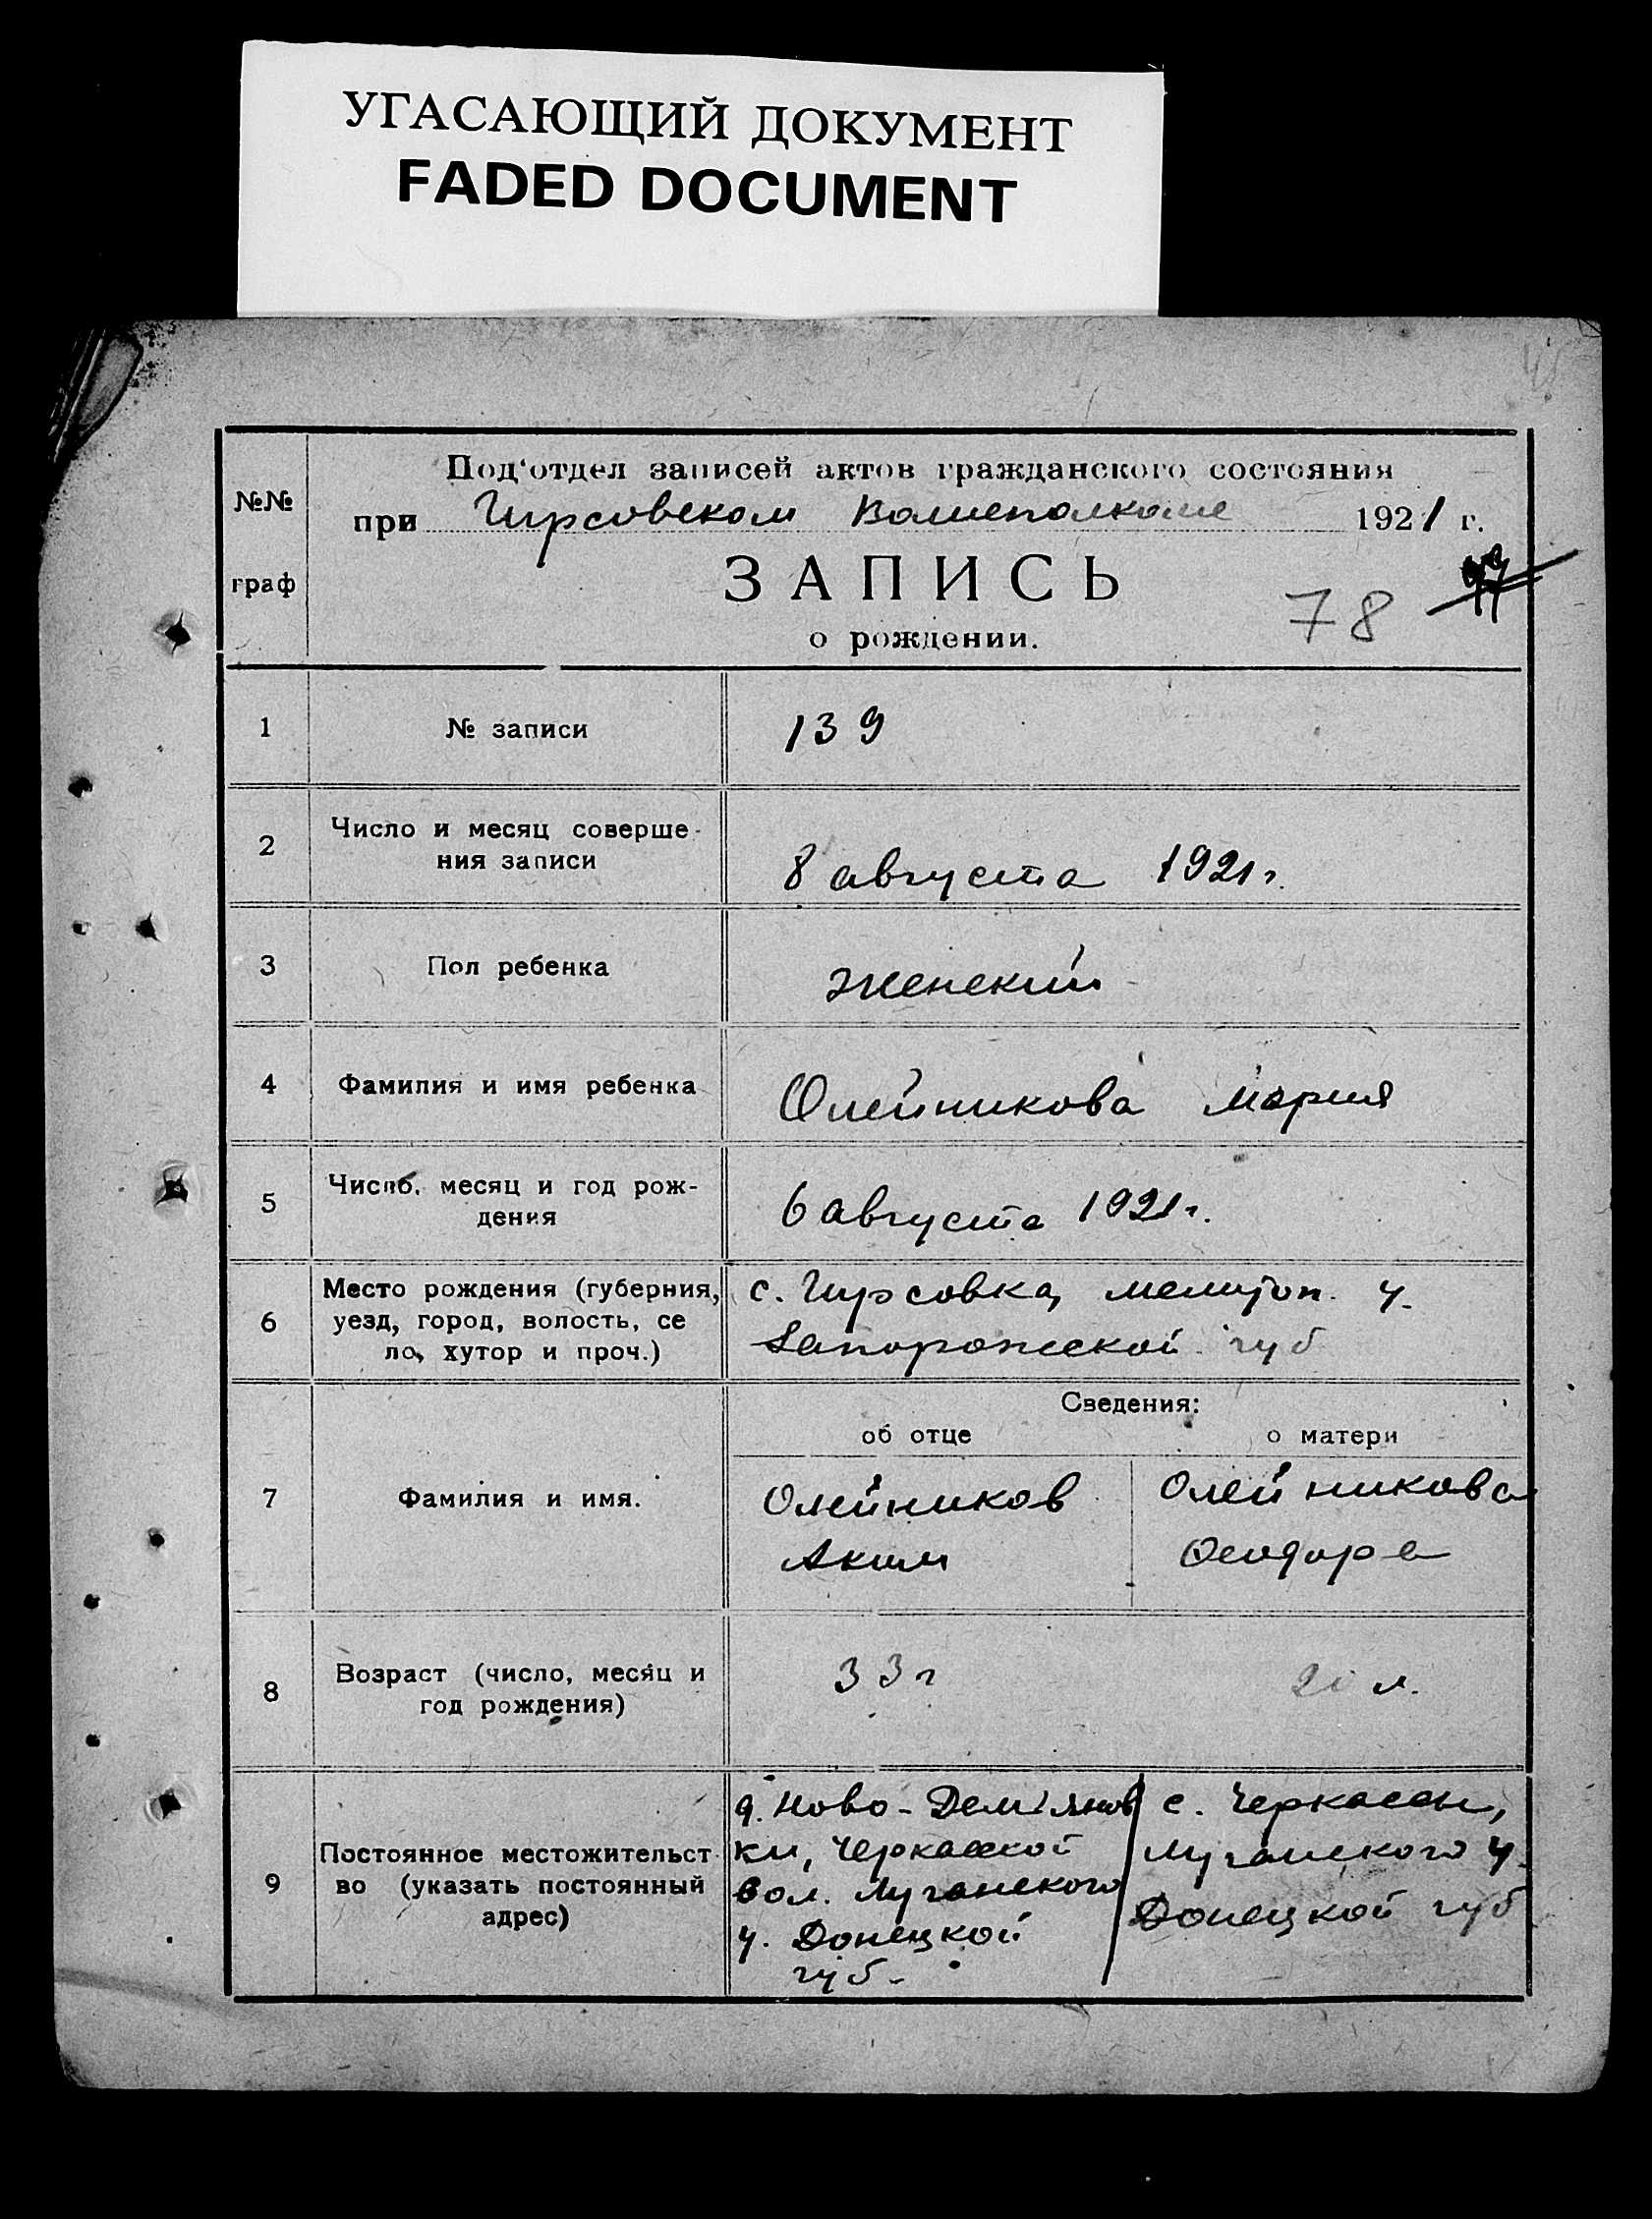 УГАСАЮЩИЙ ДОКУМЕНТ
FADED DOCUMENT
№№
граф
Под'отдел записей актов гражданского состояния
при Гирсовском Волисполкоме 1921 г.
ЗАПИСЬ
о рождении.
78
1 № записи 139
2 Число и месяц соверше-
ния записи 8 августа 1921 г.
3 Пол ребенка Женский
4 Фамилия и имя ребенка Олейникова Мария
5 Число, месяц и год рож-
дения 6 августа 1921 г.
6 Место рождения (губерния,
уезд, город, волость, се
ло, хутор и проч.)
с. Гирсовка, Мелитоп. у.
Запорожской губ
Сведения:
об отце о матери
7 Фамилия и имя.
Олейников
Аким
Олейникова
Феодора
8 Возраст (число, месяц и
год рождения)
33 г
20 л.
9 Постоянное местожительст
во (указать постоянный
адрес)
д. Ново-Демьянов
ки, Черкасской
вол. Луганского
у. Донецкой
губ.
с. Черкассы,
Луганского у.
Донецкой губ